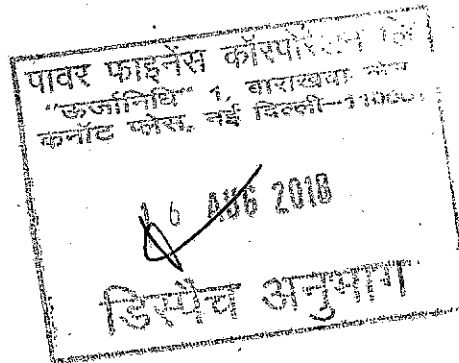 पावर फाइनेंस कॉरपोरेशन लि
"ऊर्जानिधि" 1, बाराखंबा
कनॉट प्लेस, नई दिल्ली-11000
16 AUG 2018
डिस्पैच अनुभाग